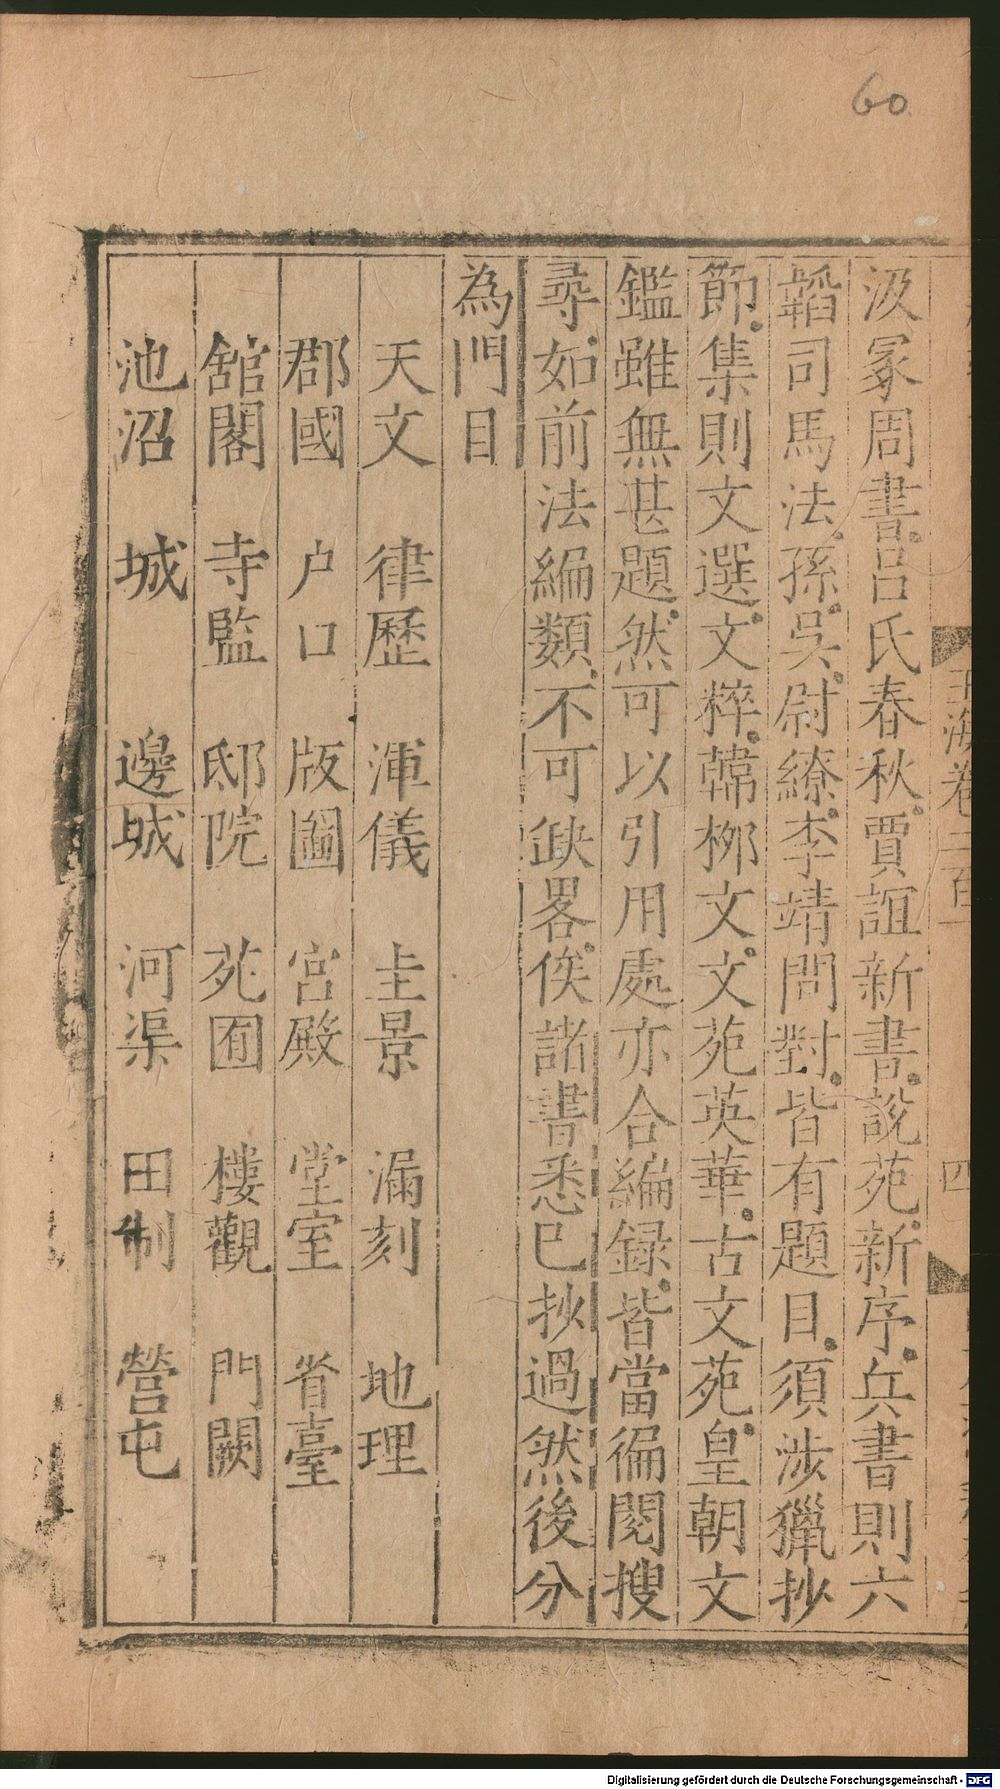 60
玉海卷二百一
四
汲冢周書呂氏春秋賈誼新書說苑新序兵書則六
韜司馬法孫吳尉繚李靖問對皆有題目須涉獵抄
節集則文選文粹韓柳文文苑英華古文苑皇朝文
鑑雖無甚題然可以引用處亦合編録皆當徧閱搜
尋如前法編類不可缺畧俟諸書悉已抄過然後分
為門目
天文 律歷 渾儀 圭景 漏刻 地理
郡國 户口 版圖 宮殿 堂室 省臺
舘閣 寺監 邸院 苑囿 樓觀 門闕
池沼 城 邊城 河渠 田制 營屯
Digitalisierung gefördert durch die Deutsche Forschungsgemeinschaft - DFG